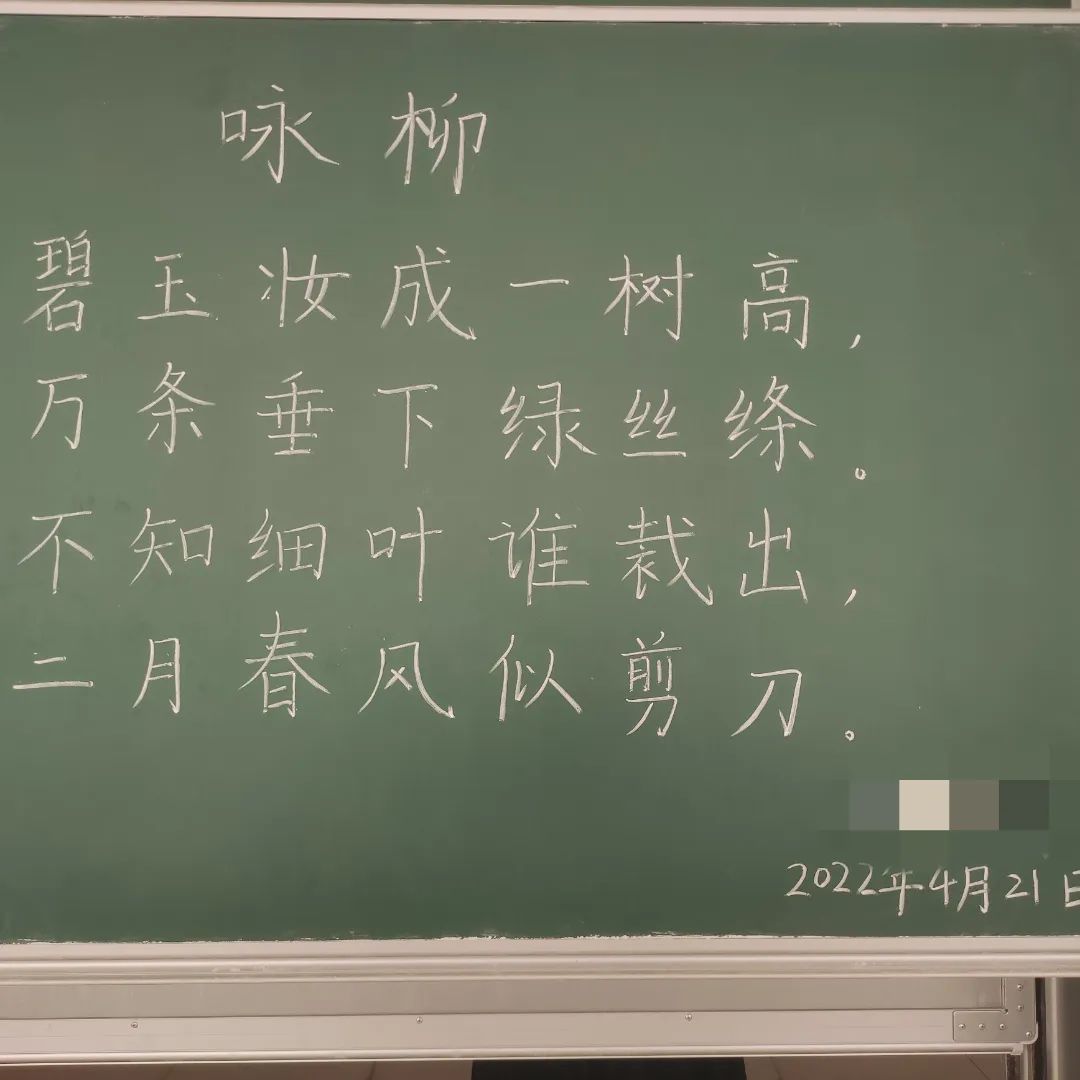 咏柳
碧玉妆成一树高，
万条垂下绿丝绦。
不知细叶谁裁出，
二月春风似剪刀。
2022年4月21日